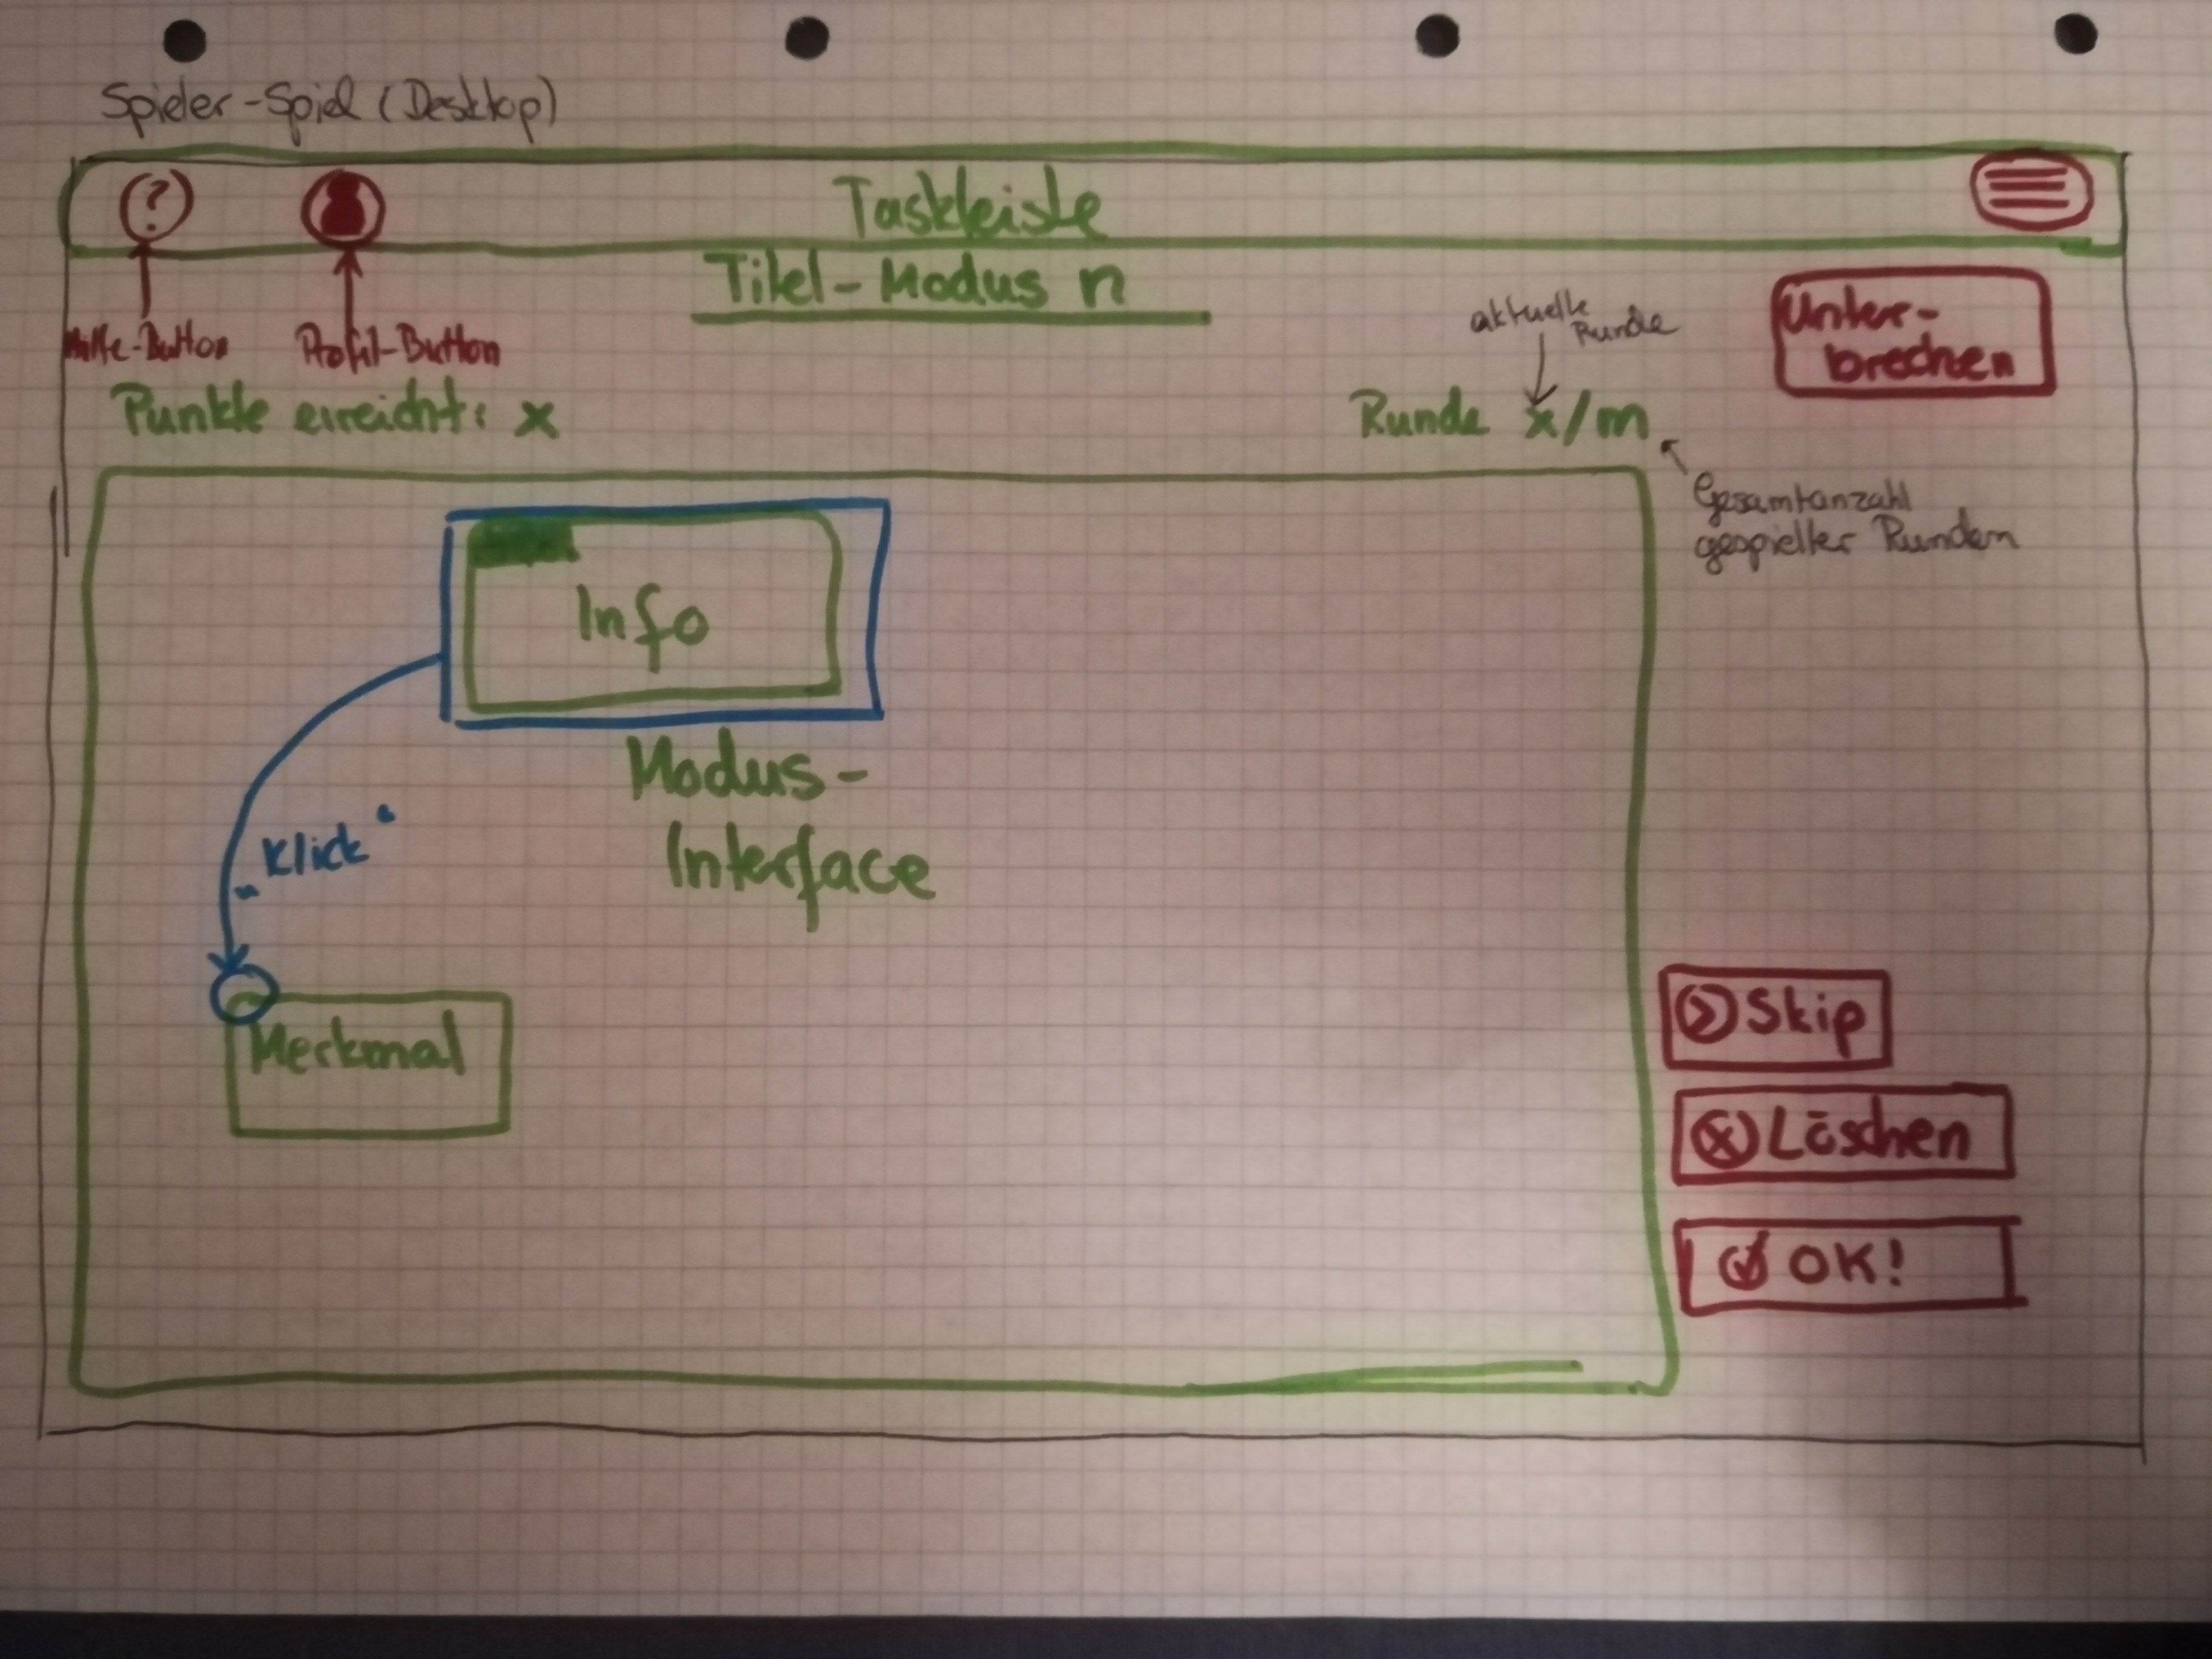 Spieler-Spiel (Desktop)
?
Taskleiste
Titel-Modus n
Hilfe-Button
Profil-Button
aktuelle
Runde
Unter-
brechen
Punkte erreicht: x
Runde x/m
Gesamtanzahl
gespielter Runden
Info
Modus-
Interface
„Klick“
Merkmal
Skip
Löschen
OK!